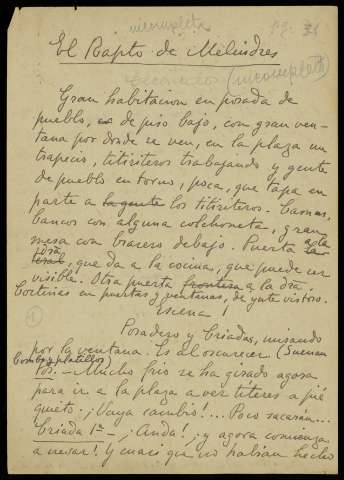 incompleta
El Rapto de Melindres
(incompleto)
Gran habitacion en posada de
pueblo, de piso bajo, con gran ven-
tana por donde se ven, en la plaza un
trapecio, titiriteros trabajando y gente
de pueblo en torno, poca, que tapa en
parte a la gente los titiriteros. Camas,
bancos con alguna colchoneta, gran
mesa con brasero debajo. Puerta a la
dra que da a la cocina, que puede ser
visible. Otra puerta frontera a la dra.
Cortinas en puertas y ventanas, de yute vistoso.
Escena 1
Posadero y Criadas, mirando
por la ventana. Es al oscurecer (Suenan
Bombo y platillos
Pos. — Mucho frio se ha girado agora
para ir a la plaza a ver titeres a pié
quieto. ¡Vaya cambio!... Poco sacarán...
Criada 1ª — ¡Anda! ¡y agora comienza
a nevar! Y cuasi que no habian hecho